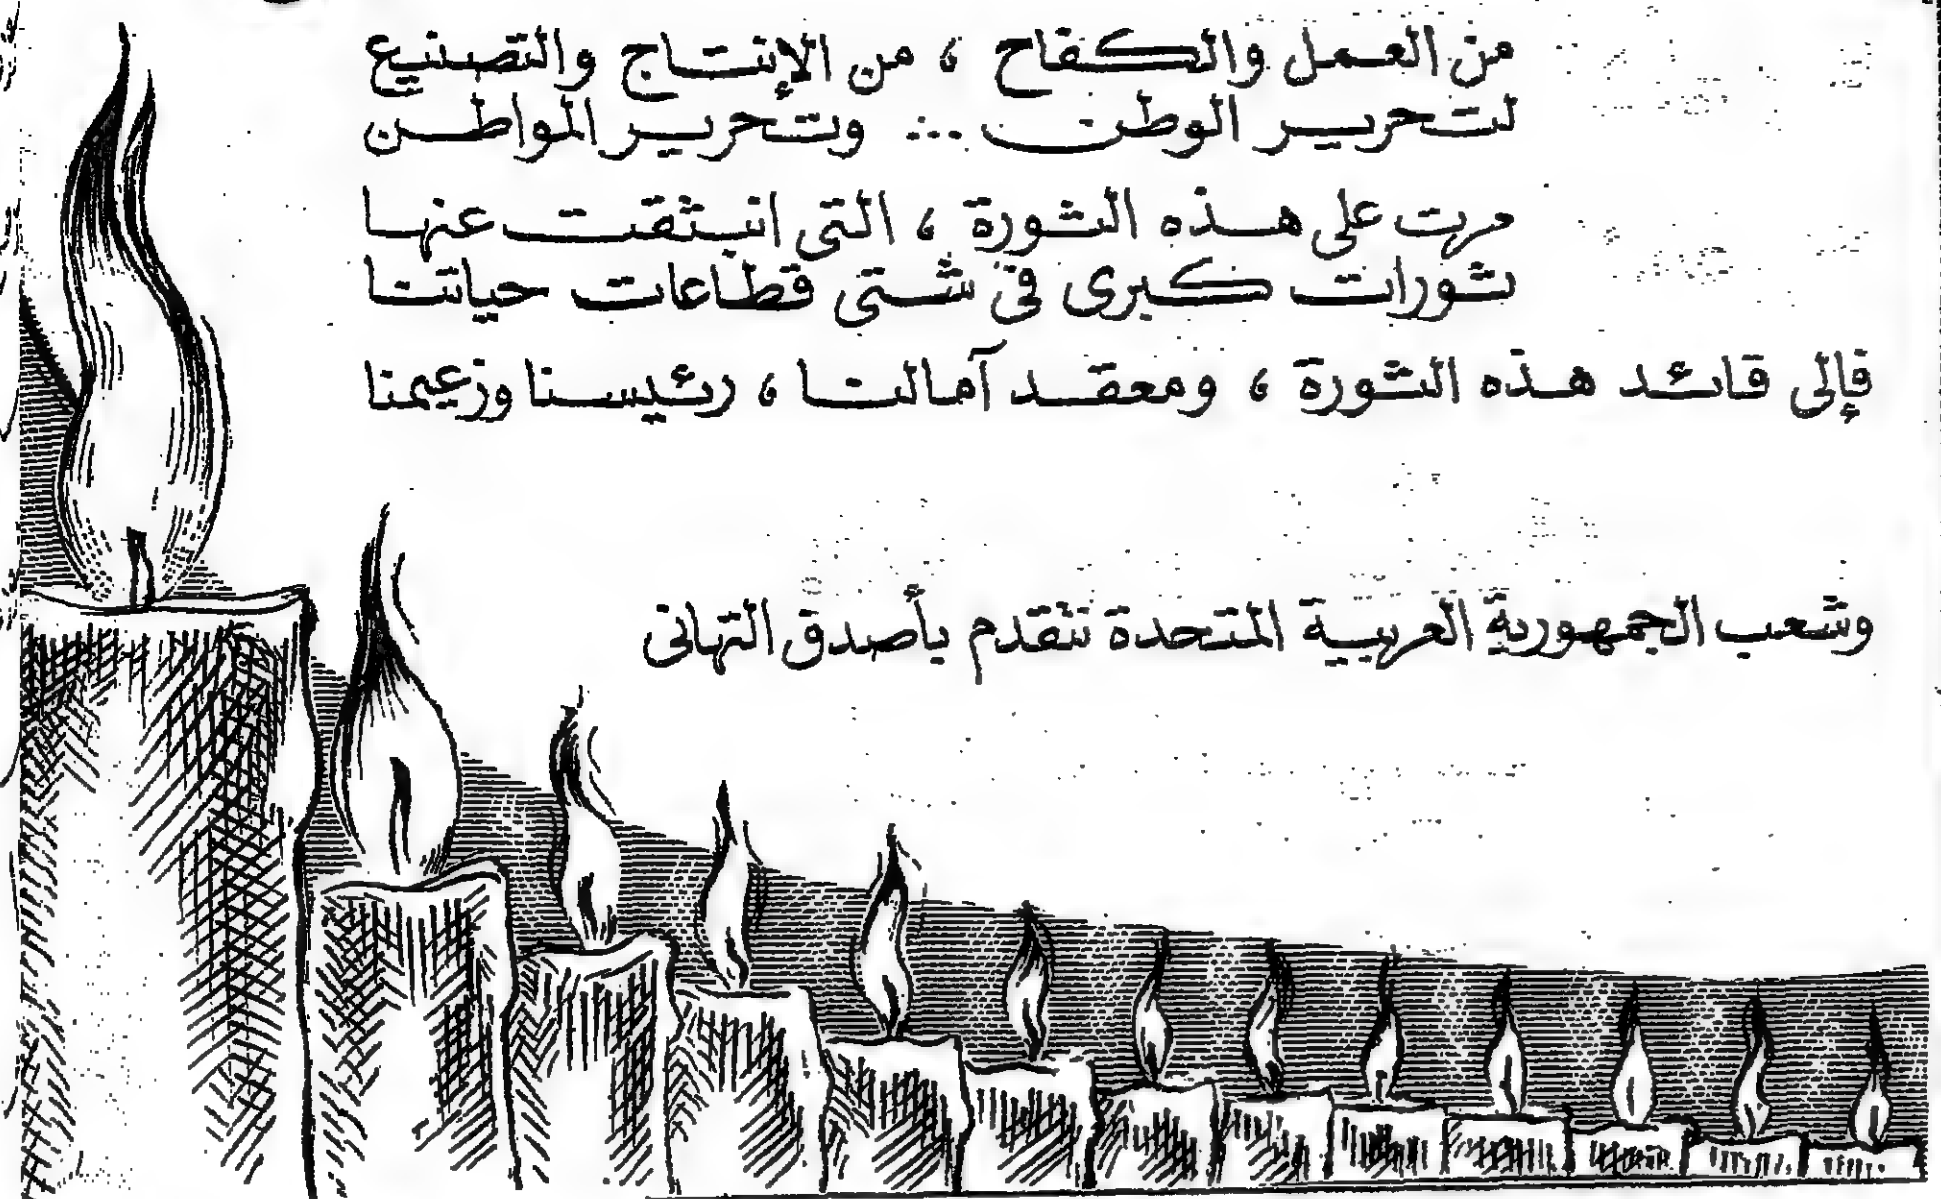 من العمل والكفاح ، من الإنتاج والتصنيع
لتحرير الوطن ... وتحرير المواطن
مرت على هذه الثورة ، التى انبثقت عنها
ثورات كبرى فى شتى قطاعات حياتنا
فإلى قائد هذه الثورة ، ومعقد آمالنا ، رئيسنا وزعيمنا
وشعب الجمهورية العربية المتحدة نتقدم بأصدق التهانى